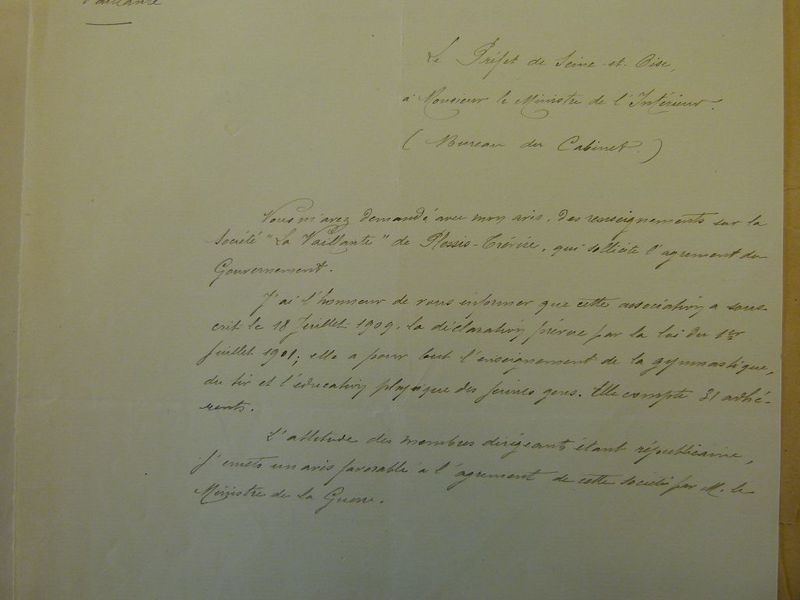 Vaillante
Le Préfet de Seine-et-Oise,
à Monsieur le Ministre de l'Intérieur.
(Bureau du Cabinet.)
Vous m'avez demandé avec mon avis, des renseignements sur la
Société "La Vaillante" de Plessis-Trévise, qui sollicite l'agrément du
Gouvernement.
J'ai l'honneur de vous informer que cette association a sous-
crit le 18 Juillet 1909, la déclaration prévue par la loi du 1er
Juillet 1901; elle a pour but l'enseignement de la gymnastique,
du tir et l'éducation physique des jeunes gens. Elle compte 31 adhé-
rents.
L'attitude des membres dirigeants étant républicaine,
j'émets un avis favorable à l'agrément de cette société par M. le
Ministre de la Guerre.